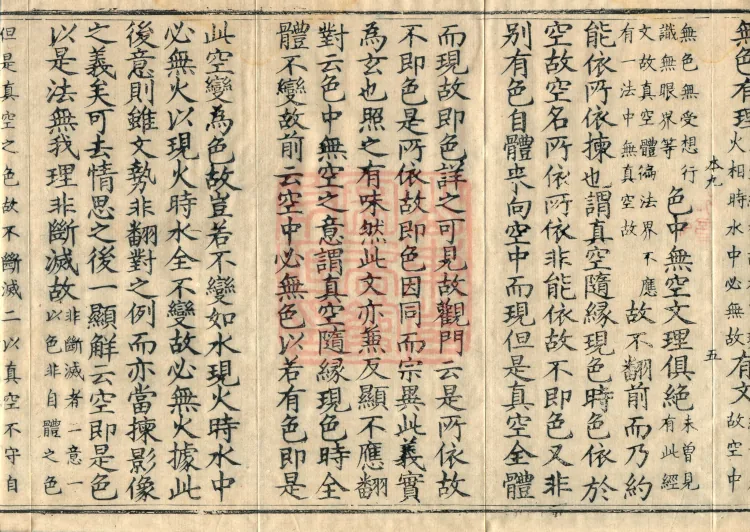 無色有理火相時水中必無故有文故空中
本九 五
無色無受想行
識無眼界等 色中無空文理俱絕未曾見
有此經
文故真空體徧法界不應
有一法中無真空故 故不翻前而乃約
能依所依揀也謂真空隨緣現色時色依於
空故空名所依所依非能依故不即色又非
別有色自體來向空中而現但是真空全體
而現故即色詳之可見故觀門云是所依故
不即色是所依故即色因同而宗異此義實
為玄也照之有味然此文亦兼反顯不應翻
對云色中無空之意謂真空隨緣現色時全
體不變故前云空中必無色以若有色即是
此空變為色故豈若不變如水現火時水中
必無火以現火時水全不變故必無火據此
後意則雖文勢非翻對之例而亦當揀影像
之義矣可去情思之後一顯解云空即是色
以是法無我理非斷滅故非斷滅者二意一
以色非自體之色
但是真空之色故不斷滅二以真空不守自